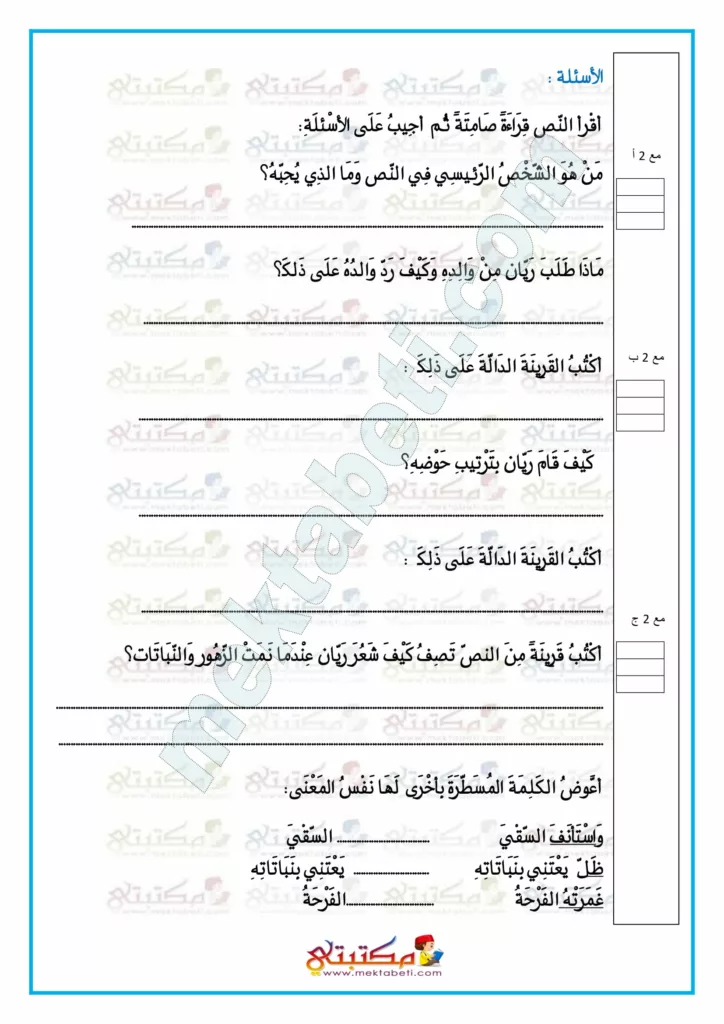 الأسئلة :
أقْرأ النّص قِرَاءَةً صَامِتَةً ثُم أجِيبُ عَلَى الأسْئلَةِ:
مع 2 أ
مَنْ هُوَ الشّخْصُ الرّئيسِي فِي النّص وَمَا الذِي يُحِبّهُ؟
مَاذَا طَلَبَ رَيّان مِنْ وَالِدِهِ وَكَيْفَ رَدّ وَالدُهُ عَلَى ذَلكَ؟
مع 2 ب
أكْتُبُ القَرِينَةَ الدَالّةَ عَلَى ذَلِكَ :
كَيْفَ قَامَ رَيّان بِتَرْتِيبِ حَوْضِهِ؟
أكْتُبُ القَرِينَةَ الدَالّةَ عَلَى ذَلِكَ :
مع 2 ج
أكْتُبُ قَرِينَةً مِنَ النصّ تَصِفُ كَيْفَ شَعُرَ رَيّان عِنْدَمَا نَمَتْ الزّهُور وَالنّبَاتَات؟
أعَّوضُ الكَلِمَةَ المُسَطّرَةَ بأخْرَى لَهَا نَفْسُ المَعْنَى:
وَاسْتَانَفَ السّقْيَ ........................ السّقْيَ
ظَلّ يَعْتَنِي بنَبَاتَاتِهِ ........................ يَعْتَنِي بنَبَاتَاتِهِ
غَمَرَتْهُ الفَرْحَةُ ........................ الفَرْحَةُ
مكتبتي
www.mektabeti.com
mektabeti.com